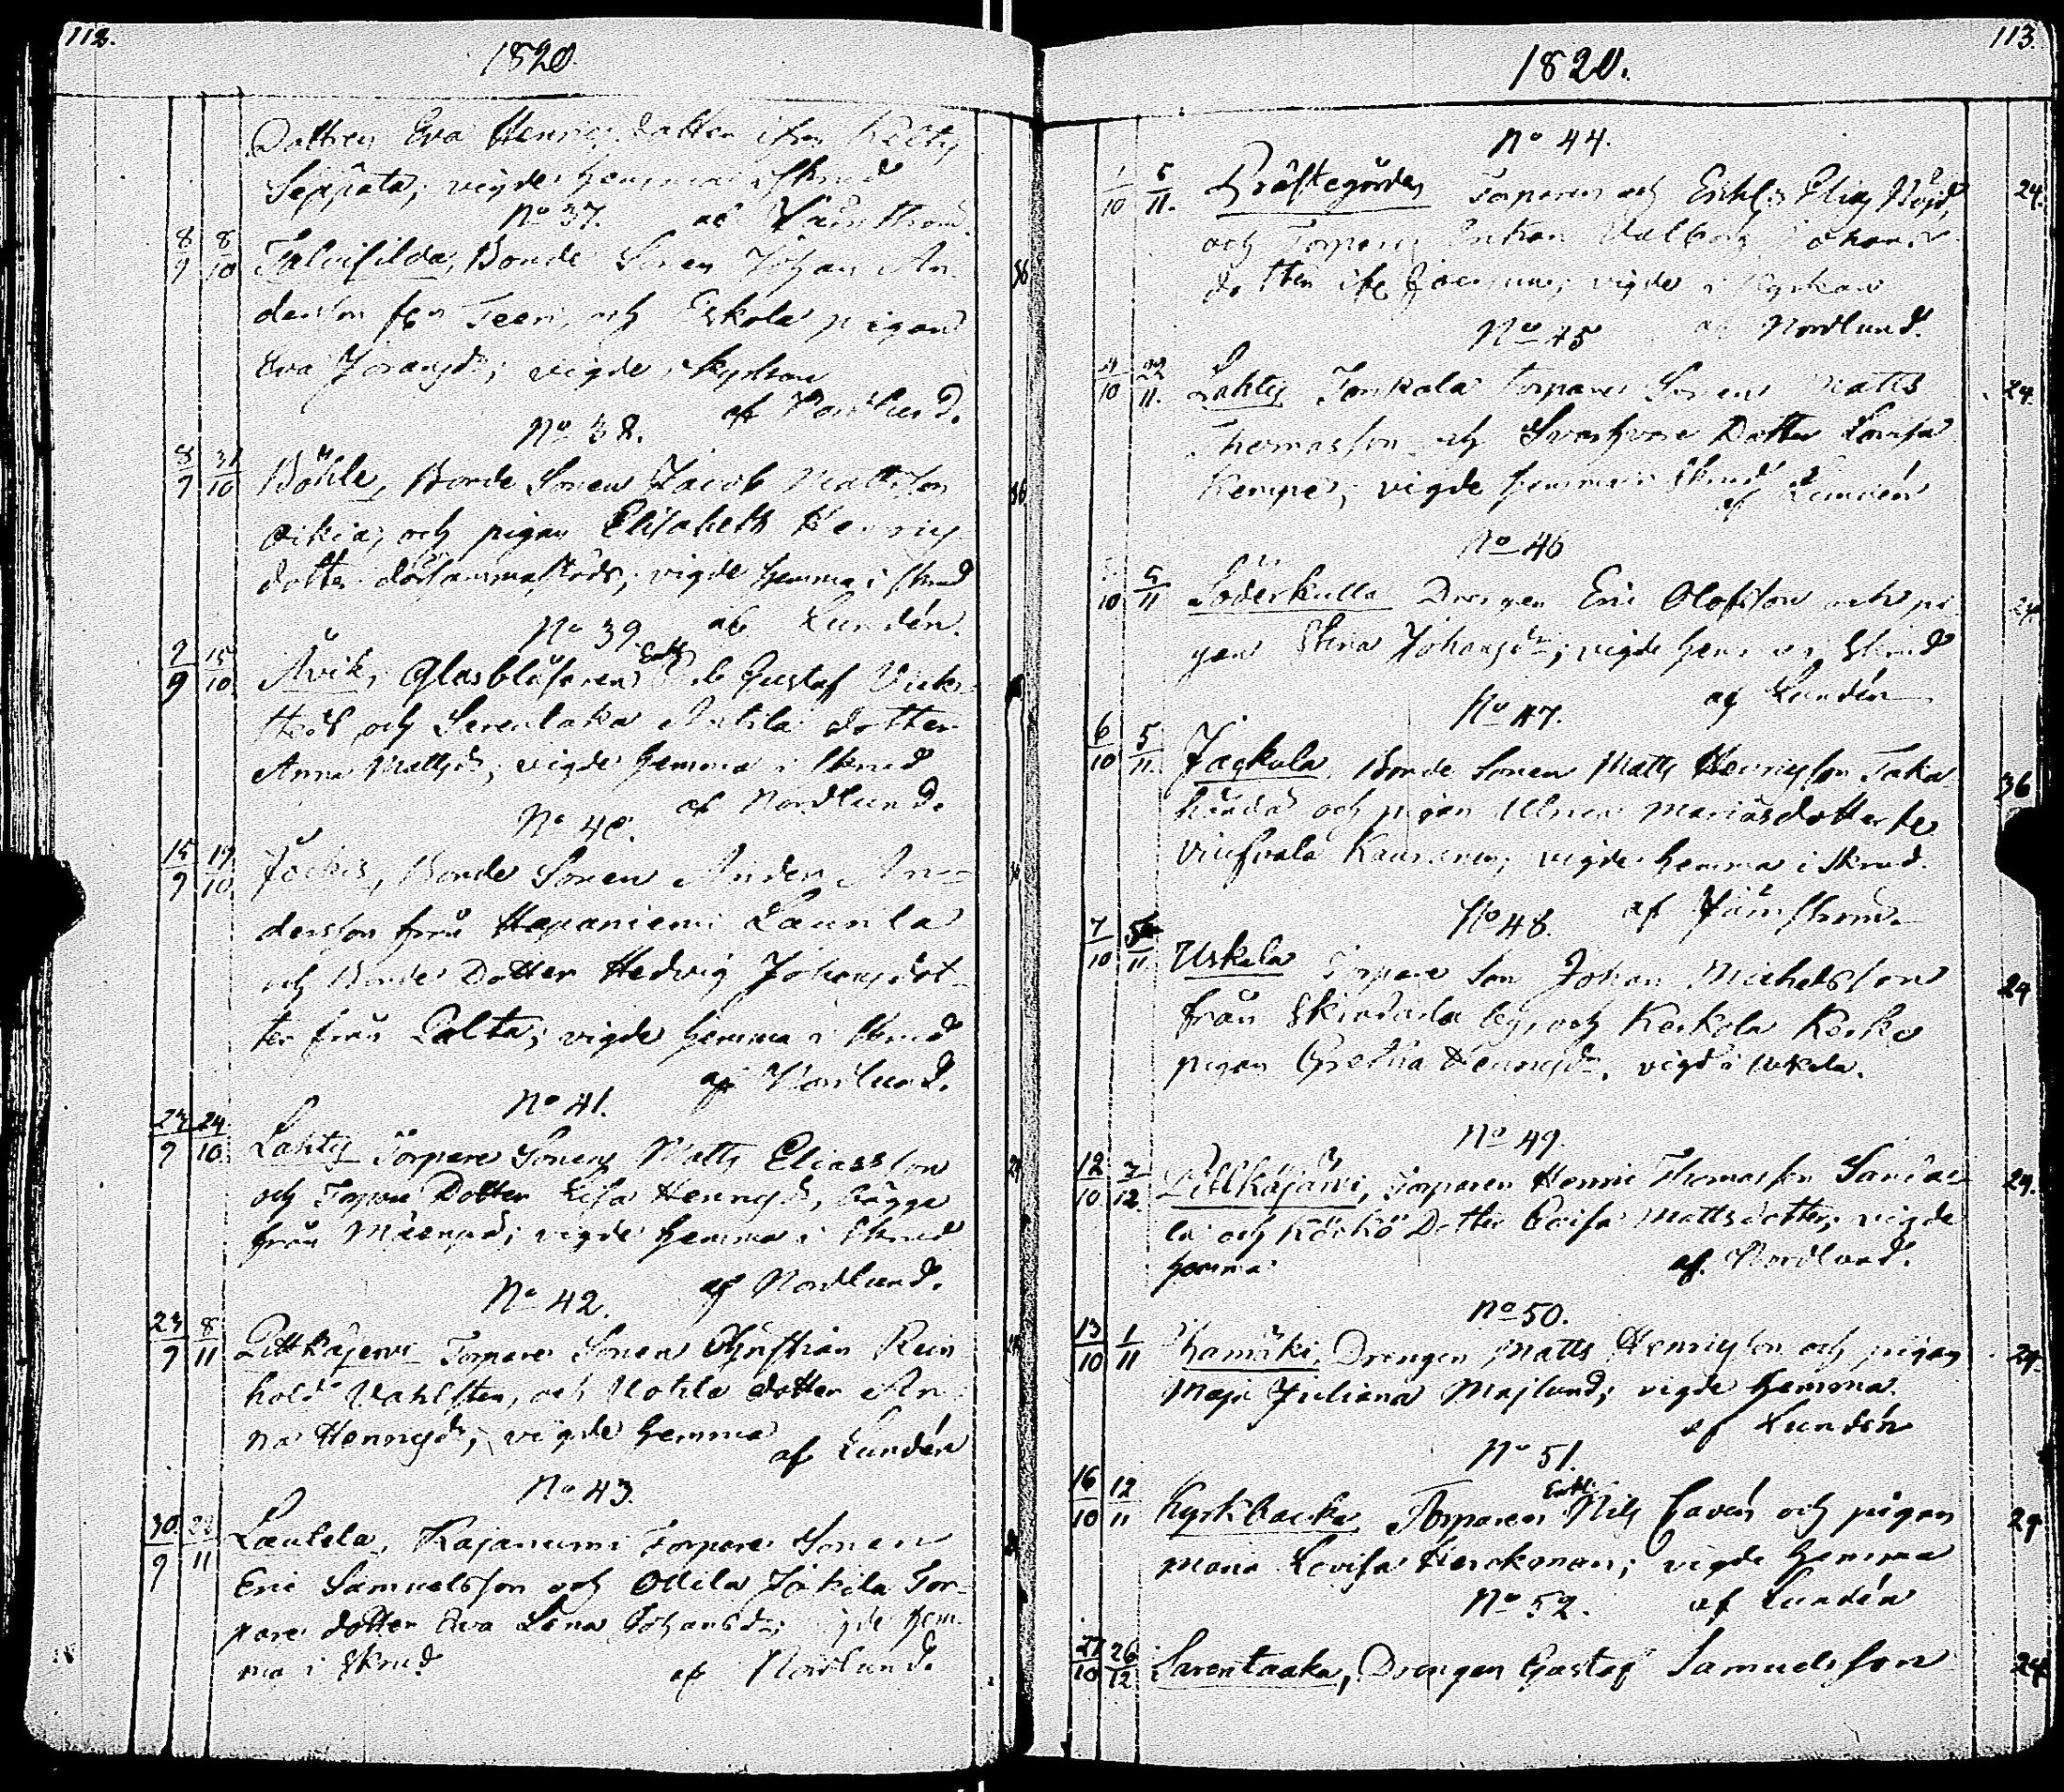 112.
1820.
Dottren Eva Henrics dotter ifrån
Seppälä; vigde hemma i skrud
No 37. af
8/9 8/10 Talvisilda, Bonde Sonen Johan An-
dersson från Teeri, och Eskola pigan
Eva Joransdr; vigde i kyrkan
No 38. af Nordlund.
8/9 31/10 Böhle, Bonde Sonen Jacob Mattsson
och pigan Elisabeth Henrics
dotter dersammastäds; vigde hemma i skrud
No 39. af Lundén.
9/9 15/10 Åvik, Glasblåsaren Enkl. Gustaf
och Sarentaka Antila dotter
Anna Mattsdr; vigde hemma i skrud
No 40. af Nordlund.
15/9 19/10 Jockis, Bonde Sonen Anders An-
dersson från Hapaniemi Laurila
och Bonde Dotter Hedvig Johansdot-
ter från Palta; vigde hemma i skrud
No 41. af Nordlund.
23/9 24/10 Lahtis Torpare Sonen Matts Eliasson
och Torpare Dotter Lisa Henricsdr, bägge
från Mäenpä; vigde hemma i skrud
No 42. af Nordlund.
23/9 8/11 Pitkäjervi Torpare Sonen Christian Rein
hold Vahlsten, och Uotila dotter An
na Henricsdr; vigde hemma
af Lundén
No 43.
30/9 /11 Laulela, Kajanumi Torpare Sonen
Eric Samuelsson och Ollila Jäkilä Tor-
pare dotter Eva Lena Johansdr; vigde hem-
ma i skrud af Nordlund.
113.
1820.
No 44.
1/10 5/11. Prästegården Torparen och Enkl. Elias 24.
och Torpare Enkan Valborg Johans
dotter ifr. Joensuu; vigde i Kyrkan
No 45 af Nordlund.
4/10 22/11. Lahtis Torpare Sonen Matts 24.
Thomasson och Svarfvare Dotter Lovisa
Kempe; vigde hemma i skrud
af Lundén
No 46
/10 5/11 Söderkulla Drengen Eric Olofsson och pi- 24.
gan Stina Johansdr; vigde hemma i skrud
No 47. af Lundén
6/10 5/11. Jackula, Bonde Sonen Matts Henricsson Taka 36
och pigan Ulrica Mariasdotter fr.
vigde hemma i skrud.
No 48. af
7/10 5/11. Uskela Torpare Son Johan Michelsson 24
från by, och Kerkola
pigan Gretha Henricsdr, vigd i Uskela.
No 49.
12/10. 3/12. Pitkäjärvi, Torparen Henric Thomasson 29.
och Körkö Dotter Lovisa Mattsdotter; vigde
hemma. af Nordlund.
No 50.
13/10 1/11 Drengen Matts Henricsson och pigan 24.
Maja Juliana Majlund; vigde hemma.
af Lundén
No 51.
16/10 12/11 Kyrkbacka Torparen Enkl. Nils Cavén och pigan 29
Maria Lovisa Herckman; vigde hemma
No 52. af Lundén
27/10 26/12 Sarentaaka, Drengen Gustaf Samuelsson 24